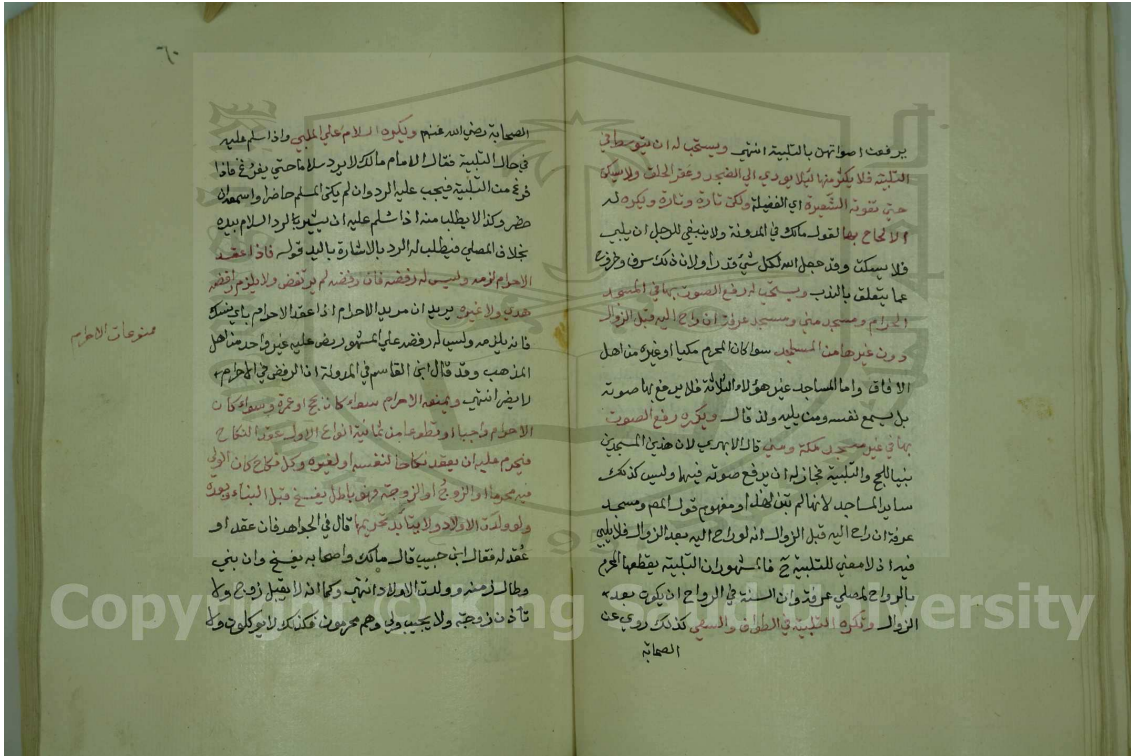 يرفعن اصواتهن بالتلبية انتهى ويستحب له ان يتوسط في
التلبية فلا يكثر منها ليلا يودي الي الضجر وعقر الحلق ولا يسكت
حتي تفوته الشعيرة اي الفضيلة ولكن تارة وتارة ويكره له
الالحاح بها لقول مالك في المدونة ولا ينبغي للرجل ان يلبي
فلا يسكت وقد جعل الله لكل شي قدرا ولان ذلك سرف وخروج
عما يتعلق بالندب ويستحب له رفع الصوت بها في المسجد
الحرام ومسجد مني ومسجد عرفة ان راح اليه قبل الزوال
دون غيرها من المساجد سوا كان المحرم مكيا او غيره من اهل
الافاق واما المساجد غير هولاء الثلاثة فلا يرفع بها صوته
بل يسمع نفسه ومن يليه ولذ قال ويكره رفع الصوت
بها في غير مسجد مكة ومني قال الابهري لان هذين المسجدين
بنيا للحج والتلبية فجاز له ان يرفع صوته فيها وليس كذلك
ساير المساجد لانها لم تبن لهذا ومفهوم قول المص ومسجد
عرفة ان راح اليه قبل الزوال انه لو راح اليه بعد الزوال فلا يلبي
فيه اذ لا معني للتلبية ح فالمشهور ان التلبية يقطعها المحرم
بالرواح لمصلي عرفة وان السنة في الرواح ان يكون بعد
الزوال وتكره التلبية في الطواف والسعي كذلك روي عن
الصحابة
٦٠
الصحابة رضي الله عنهم ويكره السلام علي الملبي واذا سلم عليه
في حال التلبية فقال الامام مالك لا يرد سلاما حتي يفرغ فاذا
فرغ من التلبية فيجب عليه الرد وان لم يكن المسلم حاضرا واسمعه ان
حضر وكذا لا يطلب منه اذا سلم عليه ان يشير لرد السلام بيده
بخلاف المصلي فيطلب له الرد بالاشارة باليد قوله فاذا عقد
الاحرام لزمه وليس له رفضه فان رفضه لم يرتفض ولا يلزم لرفضه
هدي ولا غيره يريد ان مريد الاحرام اذا عقد الاحرام باي نسك
فانه يلزمه وليس له رفضه علي المشهور نص عليه غير واحد من اهل
المذهب وقد قال ابن القاسم في المدونة ان الرفض في الاحرام
لا يضر انتهى ويمنع الاحرام سواء كان بحج او عمرة وسواء كان
الاحرام واجبا او تطوعا من ثمانية انواع الاول عقد النكاح
فيحرم عليه ان يعقد نكاحا لنفسه او لغيره وكل نكاح كان الولي
فيه محرما او الزوج او الزوجة وهو باطل يفسخ قبل البناء وبعده
ولو ولدت الاولاد ولا يتابد تحريمها قال في الجواهر فان عقد او
عُقد له فقال ابن حبيب قال مالك واصحابه يفسخ وان بني
وطال زمنه وولدت الاولاد انتهى وكما انه لا يقبل زوج ولا
تاذن زوجة ولا يجيب ولي وهم محرمون فكذلك لا يوكلون ولا
ممنوعات الاحرام
Copyright © King Saud University